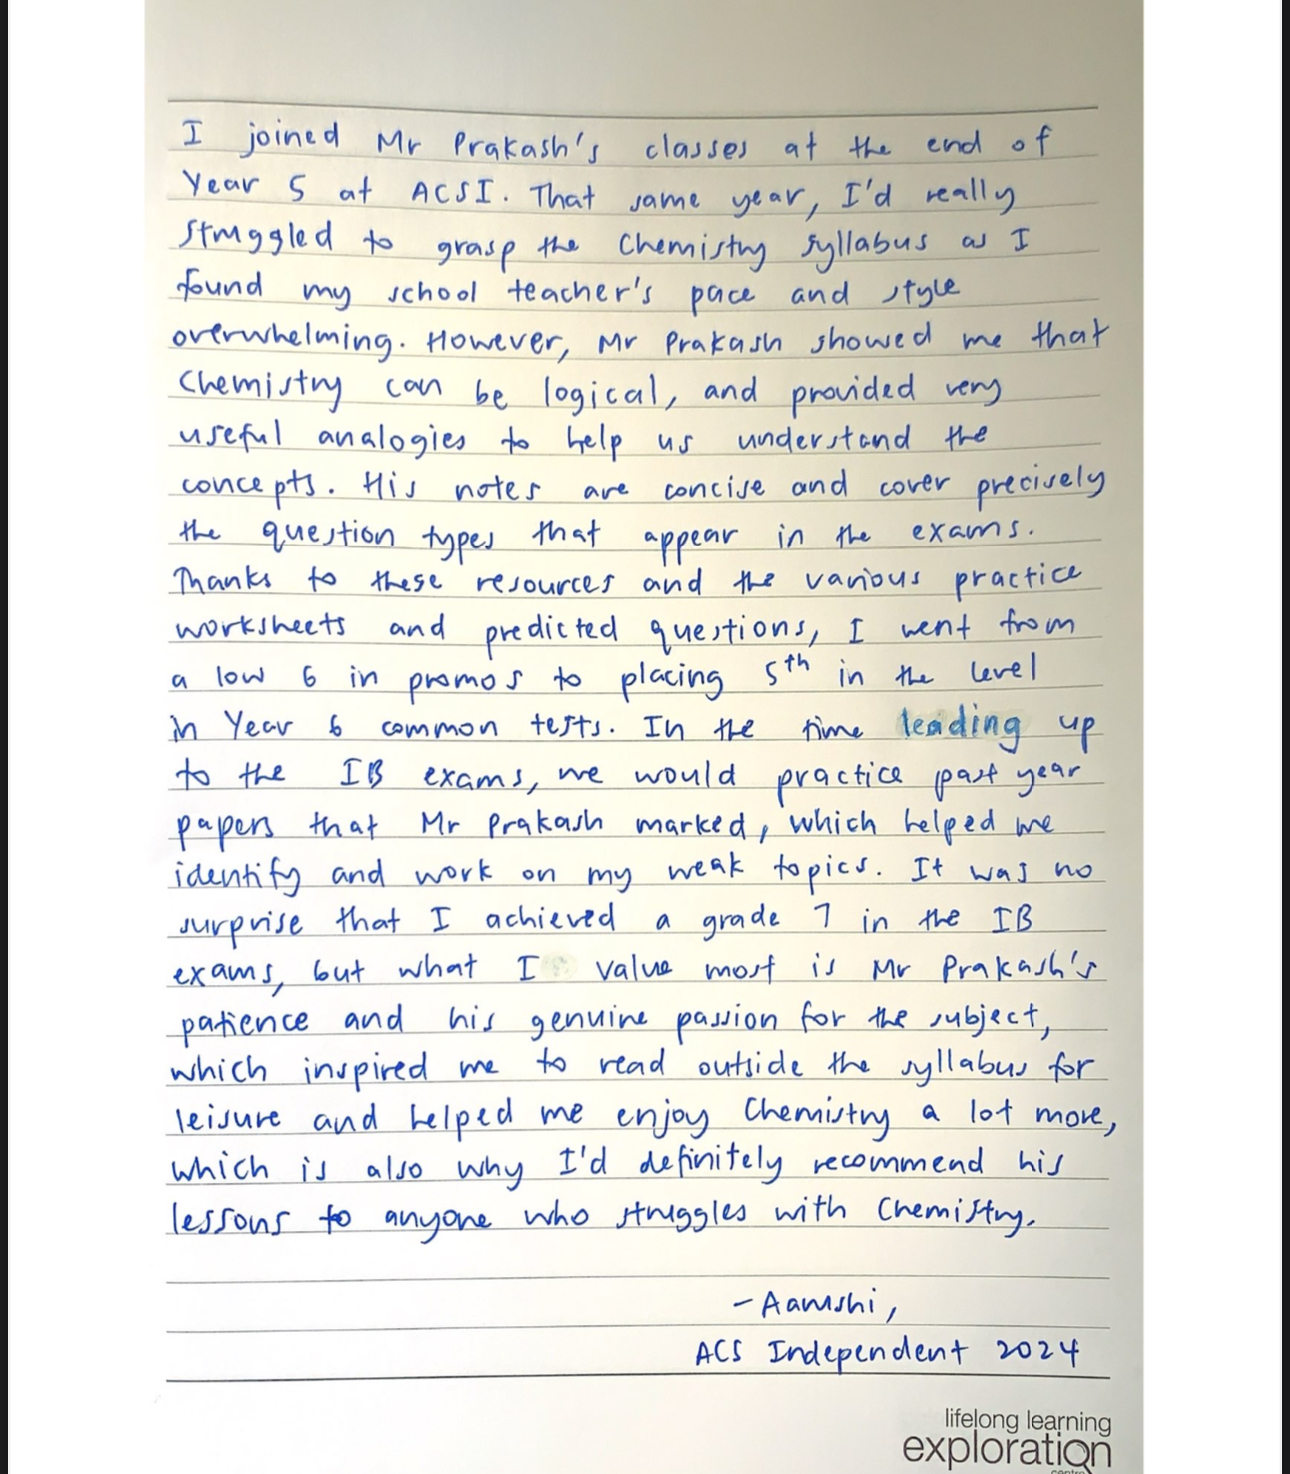 I joined Mr Prakash's classes at the end of
Year 5 at ACSI. That same year, I'd really
struggled to grasp the Chemistry syllabus as I
found my school teacher's pace and style
overwhelming. However, Mr Prakash showed me that
Chemistry can be logical, and provided very
useful analogies to help us understand the
concepts. His notes are concise and cover precisely
the question types that appear in the exams.
Thanks to these resources and the various practice
worksheets and predicted questions, I went from
a low 6 in promos to placing 5th in the level
in Year 6 common tests. In the time leading up
to the IB exams, we would practice past year
papers that Mr Prakash marked, which helped me
identify and work on my weak topics. It was no
surprise that I achieved a grade 7 in the IB
exams, but what I value most is Mr Prakash's
patience and his genuine passion for the subject,
which inspired me to read outside the syllabus for
leisure and helped me enjoy Chemistry a lot more,
which is also why I'd definitely recommend his
lessons to anyone who struggles with Chemistry.
- Aamshi,
ACS Independent 2024
lifelong learning
exploration
centre